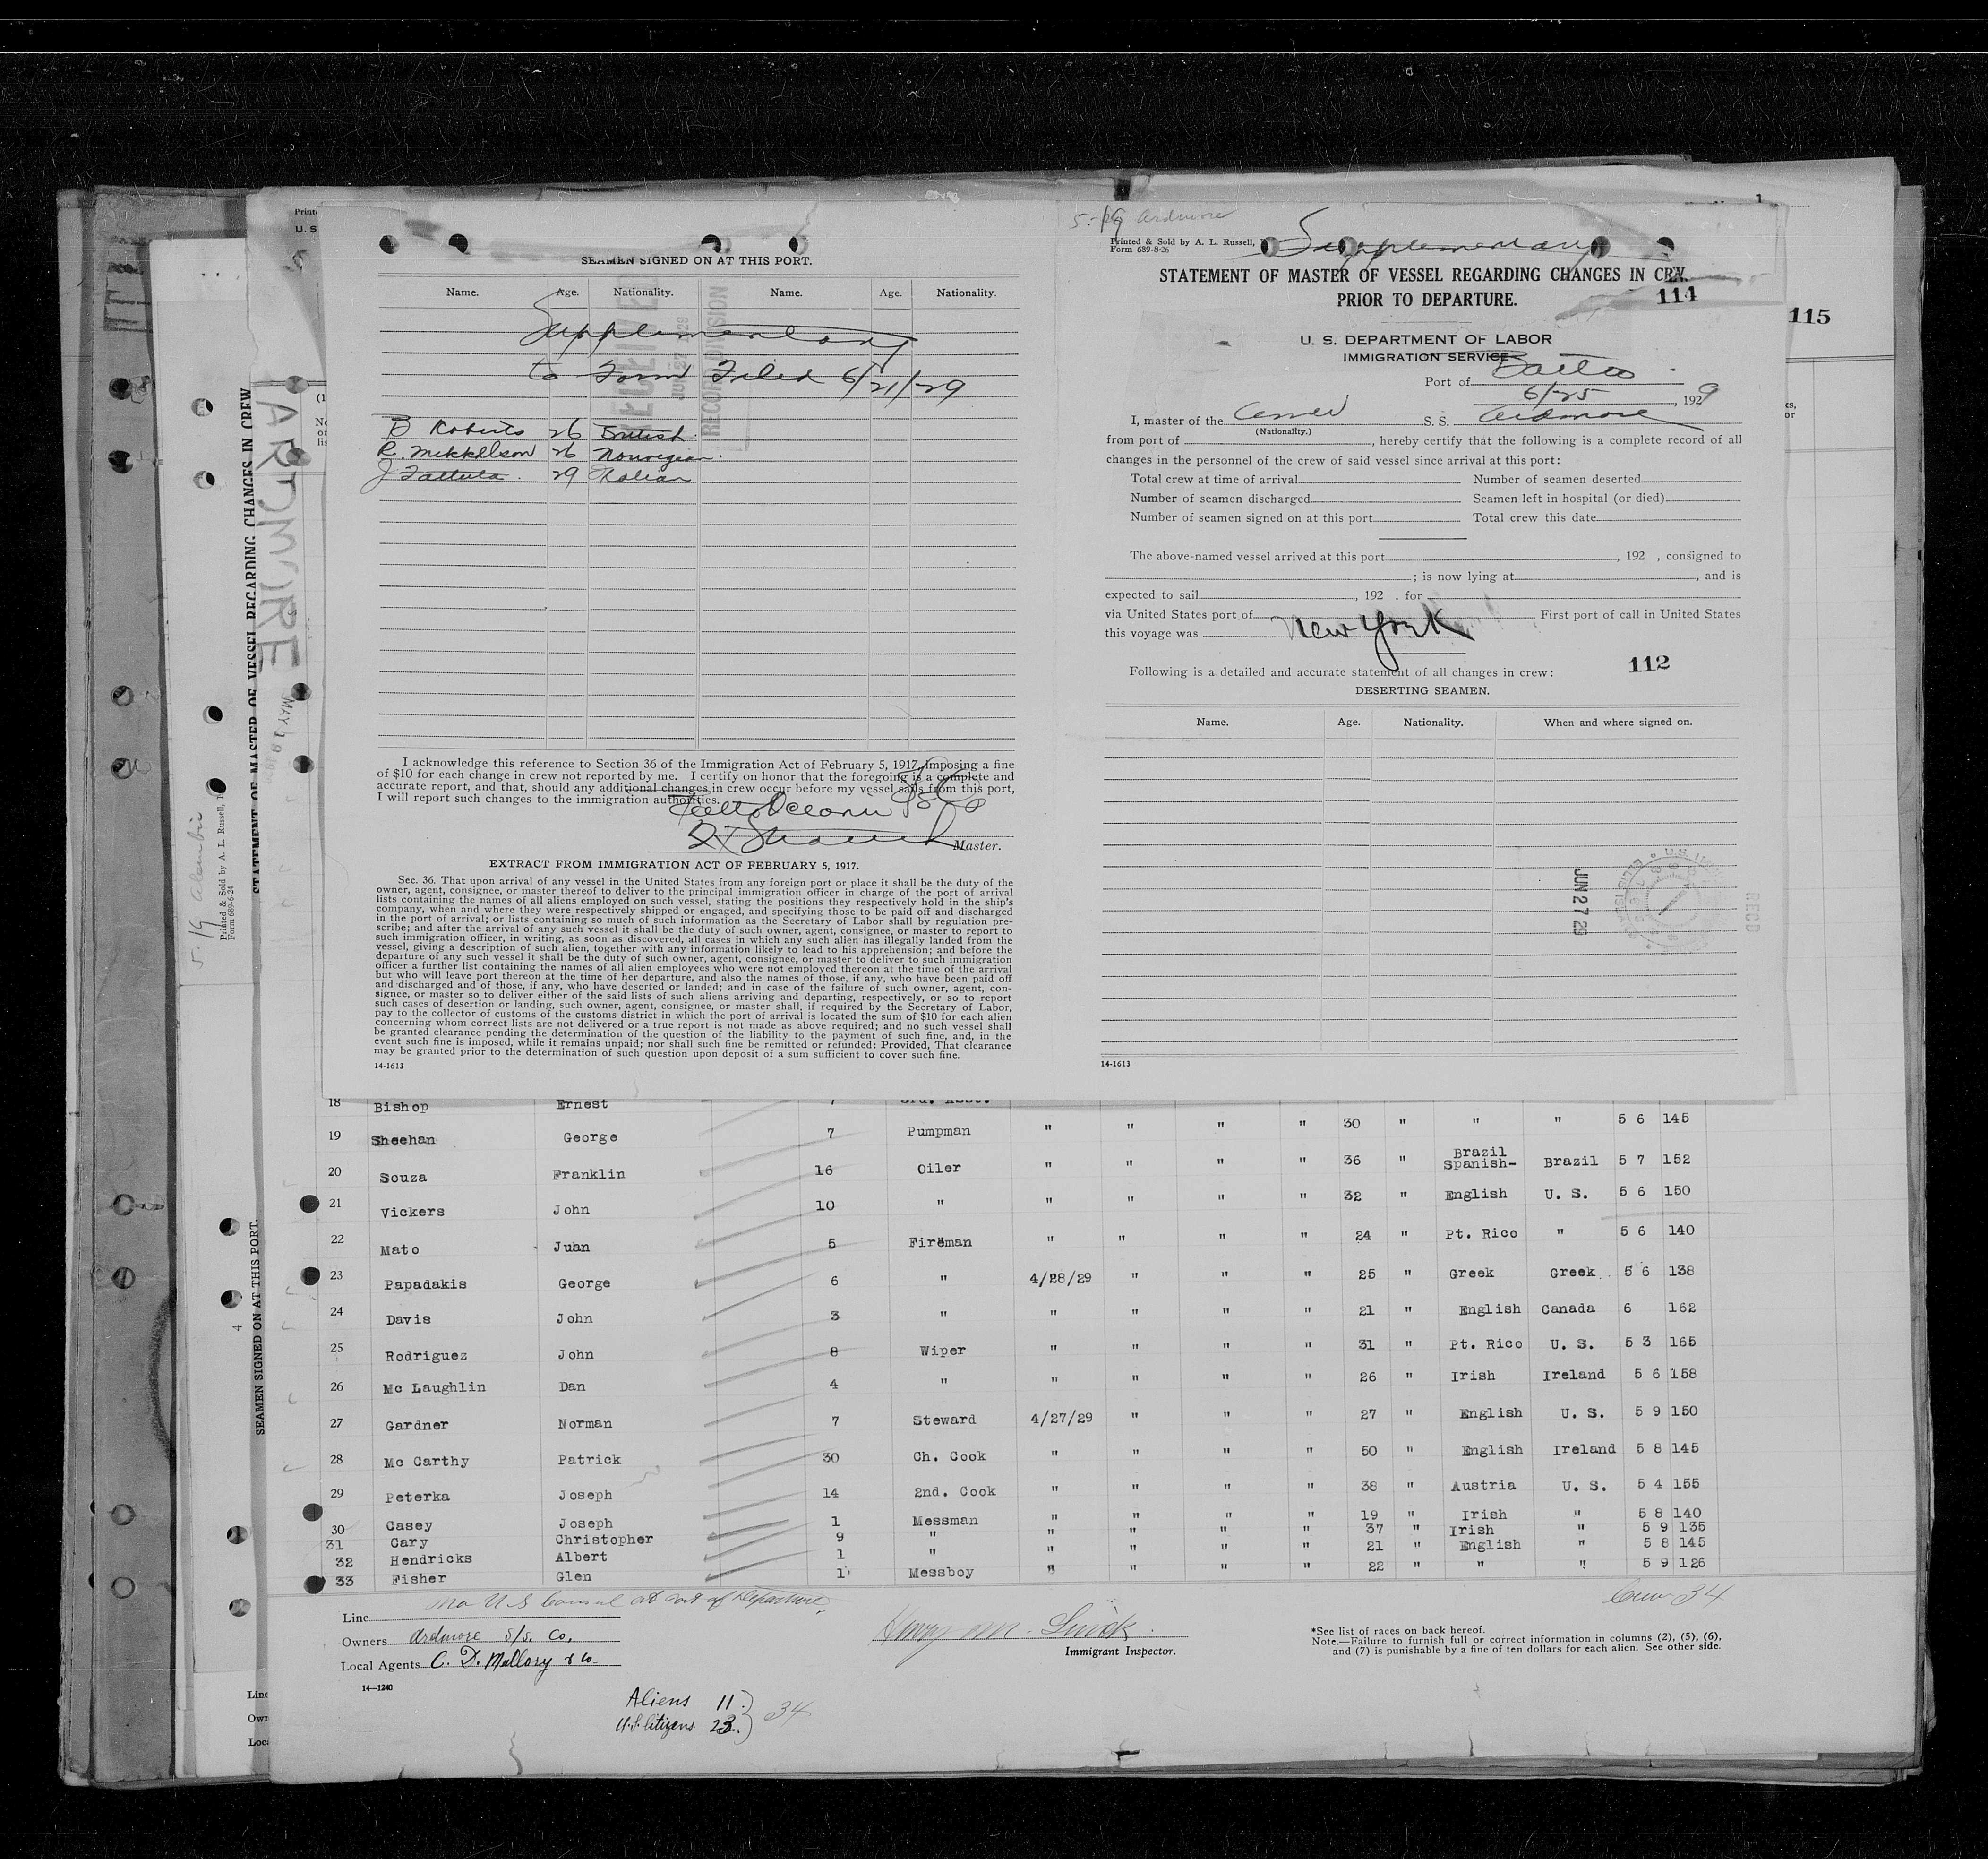 SEAMEN SIGNED ON AT THIS PORT.
Name. Age. Nationality. Name. Age. Nationality.
Supplementary
to Form Filed 6/21/29
RECEIVED
JUN 27 1929
RECORD DIVISION
B Roberts 26 British
R. Mikkelson 26 Norwegian
J 29 Italian
I acknowledge this reference to Section 36 of the Immigration Act of February 5, 1917, imposing a fine
of $10 for each change in crew not reported by me. I certify on honor that the foregoing is a complete and
accurate report, and that, should any additional changes in crew occur before my vessel sails from this port,
I will report such changes to the immigration authorities.
Master.
EXTRACT FROM IMMIGRATION ACT OF FEBRUARY 5, 1917.
Sec. 36. That upon arrival of any vessel in the United States from any foreign port or place it shall be the duty of the
owner, agent, consignee, or master thereof to deliver to the principal immigration officer in charge of the port of arrival
lists containing the names of all aliens employed on such vessel, stating the positions they respectively hold in the ship's
company, when and where they were respectively shipped or engaged, and specifying those to be paid off and discharged
in the port of arrival; or lists containing so much of such information as the Secretary of Labor shall by regulation pre-
scribe; and after the arrival of any such vessel it shall be the duty of such owner, agent, consignee, or master to report to
such immigration officer, in writing, as soon as discovered, all cases in which any such alien has illegally landed from the
vessel, giving a description of such alien, together with any information likely to lead to his apprehension; and before the
departure of any such vessel it shall be the duty of such owner, agent, consignee, or master to deliver to such immigration
officer a further list containing the names of all alien employees who were not employed thereon at the time of the arrival
but who will leave port thereon at the time of her departure, and also the names of those, if any, who have been paid off
and discharged and of those, if any, who have deserted or landed; and in case of the failure of such owner, agent, con-
signee, or master so to deliver either of the said lists of such aliens arriving and departing, respectively, or so to report
such cases of desertion or landing, such owner, agent, consignee, or master shall, if required by the Secretary of Labor,
pay to the collector of customs of the customs district in which the port of arrival is located the sum of $10 for each alien
concerning whom correct lists are not delivered or a true report is not made as above required; and no such vessel shall
be granted clearance pending the determination of the question of the liability to the payment of such fine, and, in the
event such fine is imposed, while it remains unpaid; nor shall such fine be remitted or refunded: Provided, That clearance
may be granted prior to the determination of such question upon deposit of a sum sufficient to cover such fine.
14-1613
5-19 Ardmore
Printed & Sold by A. L. Russell,
Form 689-8-26
Supplementary
STATEMENT OF MASTER OF VESSEL REGARDING CHANGES IN CREW
PRIOR TO DEPARTURE.
114
115
U. S. DEPARTMENT OF LABOR
IMMIGRATION SERVICE
Port of Balto
6/25, 1929
I, master of the Amer S. S. Ardmore
(Nationality.)
from port of , hereby certify that the following is a complete record of all
changes in the personnel of the crew of said vessel since arrival at this port:
Total crew at time of arrival Number of seamen deserted
Number of seamen discharged Seamen left in hospital (or died)
Number of seamen signed on at this port Total crew this date
The above-named vessel arrived at this port , 192 , consigned to
; is now lying at , and is
expected to sail , 192 . for
via United States port of First port of call in United States
this voyage was New York
112
Following is a detailed and accurate statement of all changes in crew:
DESERTING SEAMEN.
Name. Age. Nationality. When and where signed on.
JUN 27 29
RECD
14-1613
STATEMENT OF MASTER OF VESSEL REGARDING CHANGES IN CREW
ARDMORE
MAY 19
5-19 Alembic
Printed & Sold by A. L. Russell,
Form 689-6-24
SEAMEN SIGNED ON AT THIS PORT.
4
18 Bishop Ernest 7 3rd. Asst.
19 Sheehan George 7 Pumpman " " " " 30 " " " 5 6 145
20 Souza Franklin 16 Oiler " " " " 36 " Brazil Spanish- Brazil 5 7 152
21 Vickers John 10 " " " " " 32 " English U. S. 5 6 150
22 Mato Juan 5 Fireman " " " " 24 " Pt. Rico " 5 6 140
23 Papadakis George 6 " 4/28/29 " " " 25 " Greek Greek 5 6 138
24 Davis John 3 " " " " " 21 " English Canada 6 162
25 Rodriguez John 8 Wiper " " " " 31 " Pt. Rico U. S. 5 3 165
26 Mc Laughlin Dan 4 " " " " " 26 " Irish Ireland 5 6 158
27 Gardner Norman 7 Steward 4/27/29 " " " 27 " English U. S. 5 9 150
28 Mc Carthy Patrick 30 Ch. Cook " " " " 50 " English Ireland 5 8 145
29 Peterka Joseph 14 2nd. Cook " " " " 38 " Austria U. S. 5 4 155
30 Casey Joseph 1 Messman " " " " 19 " Irish " 5 8 140
31 Cary Christopher 9 " " " " " 37 " Irish " 5 9 135
32 Hendricks Albert 1 " " " " " 21 " English " 5 8 145
33 Fisher Glen 1 Messboy " " " " 22 " " " 5 9 126
No U.S Consul at Port of Departure
Crew 34
Line
Owners Ardmore S/S. Co.
Local Agents C. D. Mallory & Co.
Immigrant Inspector.
*See list of races on back hereof.
Note.—Failure to furnish full or correct information in columns (2), (5), (6),
and (7) is punishable by a fine of ten dollars for each alien. See other side.
14—1240
Aliens 11
U.S. Citizens 23
34